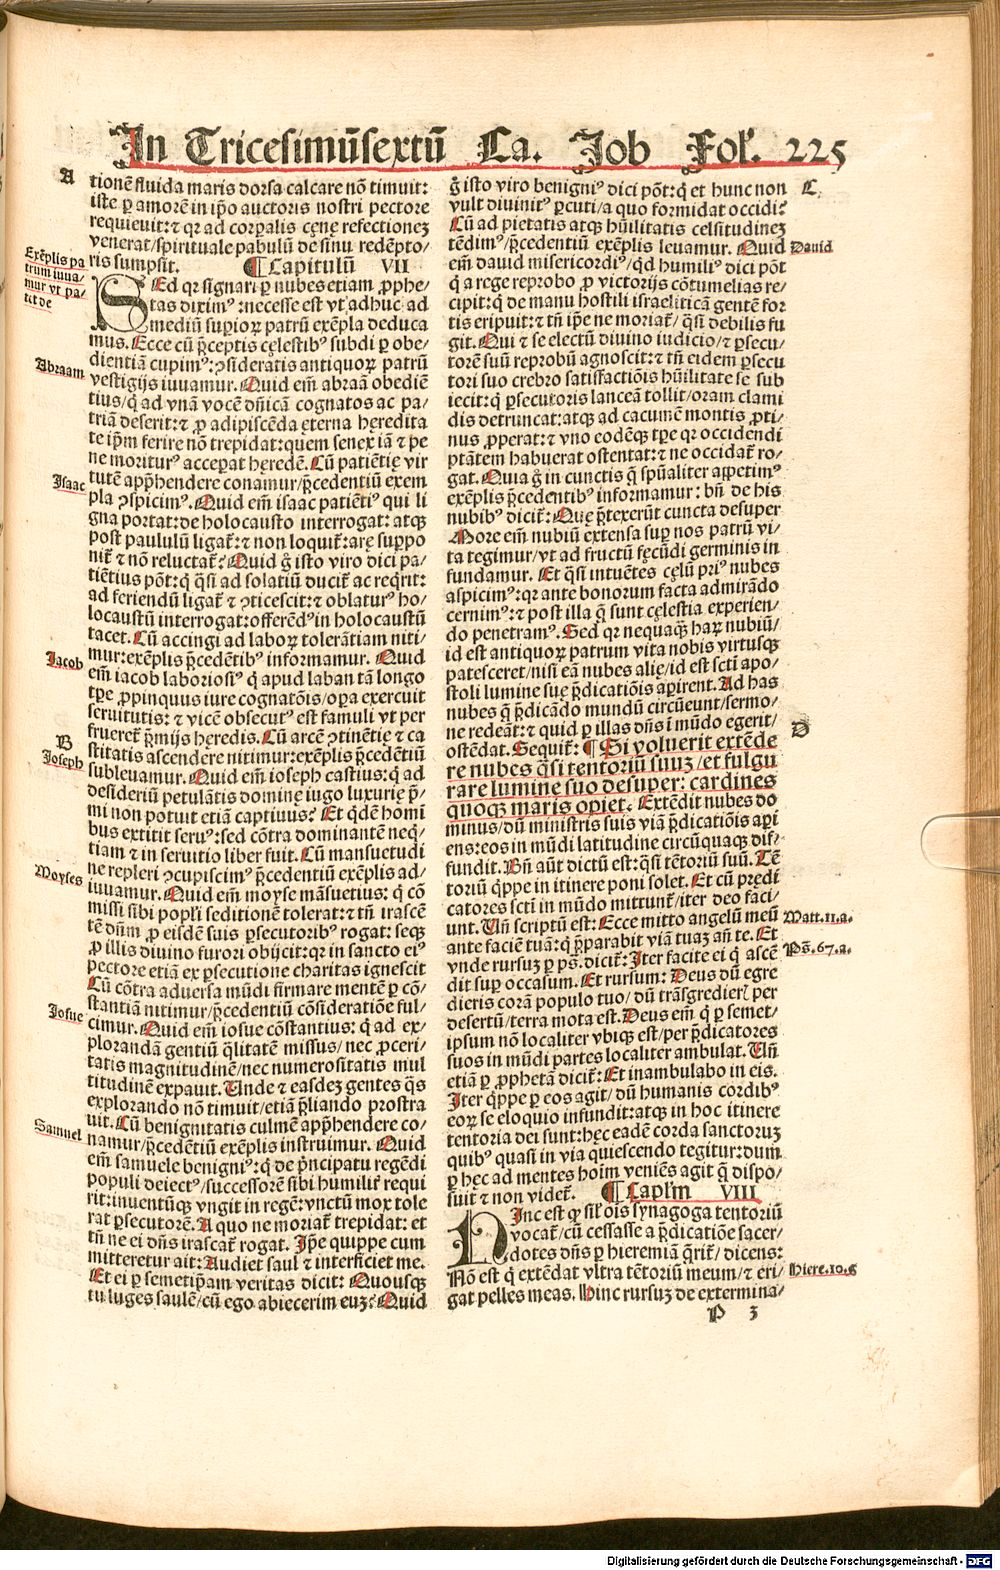 In Tricesimūsextū Ca. Job Fol. 225
A
tionē fluida maris dorsa calcare nō timuit:
iste ꝑ amorē in ip̄o auctoris nostri pectore
requieuit: ⁊ qꝛ ad corꝑalis cęnę refectioneꝫ
venerat/spirituale pabulū de sinu redēpto/
ris sumpsit. ¶ Capitulū VII
Exēplis pa
trum iuua/
mur vt pa/
tet de
SEd qꝛ signari ꝑ nubes etiam ꝓphe/
tas diximꝰ: necesse est vt adhuc ad
mediū supioꝝ patrū exēpla deduca
mus. Ecce cū p̄ceptis cęlestibꝰ subdi ꝑ obe/
dientiā cupimꝰ: ꝯsideratis antiquoꝝ patrū
Abraam
vestigijs iuuamur. Quid em̄ abraā obediē
tius/q̄ ad vnā vocē dn̄icā cognatos ac pa/
triā deserit: ⁊ ꝓ adipiscēda ęterna hęredita
te ip̄m ferire nō trepidat: quem senex iā ⁊ pe
ne moriturꝰ acceꝑat hęredē. Cū patiētię vir
Isaac
tutē app̄hendere conamur/p̄cedentiū exem
pla ꝯspicimꝰ. Quid em̄ isaac patiētiꝰ qui li
gna portat: de holocausto interrogat: atqꝫ
post paululū ligat̄: ⁊ non loquit̄: arę suppo
nit̄ ⁊ nō reluctat̄? Quid g̊ isto viro dici pa/
tiētius pōt: q̄ q̄si ad solatiū ducit̄ ac reqrit:
ad feriendū ligat̄ ⁊ ꝯticescit: ⁊ oblaturꝰ ho/
locaustū interrogat: offerēdꝰ in holocaustū
tacet. Cū accingi ad laboꝝ tolerātiam niti/
Jacob
mur: exēplis p̄cedētibꝰ informamur. Quid
em̄ iacob laboriosiꝰ q̄ apud laban tā longo
tꝑe ꝓpinquus iure cognatōis/oꝑa exercuit
seruitutis: ⁊ vicē obsecutꝰ est famuli vt per
frueret̄ p̄mijs hęredis. Cū arcē ꝯtinētię ⁊ ca
B
Joseph
stitatis ascendere nitimur: exēplis p̄cedētiū
subleuamur. Quid em̄ ioseph castius: q̄ ad
desideriū petulātis dominę iugo luxurię p̄/
mi non potuit etiā captiuus? Et q̄dē homi
bus extitit seruꝰ: sed cōtra dominantē neq̄/
tiam ⁊ in seruitio liber fuit. Cū mansuetudi
Moyses
ne repleri ꝯcupiscimꝰ p̄cedentiū exēplis ad/
iuuamur. Quid em̄ moyse māsuetius: q̄ cō
missi sibi popl̄i seditionē tolerat: ⁊ tn̄ irascē
tē dn̄m ꝓ eisdē suis ꝑsecutoribꝰ rogat: seqꝫ
ꝓ illis diuino furori obijcit: qꝛ in sancto eiꝰ
pectore etiā ex ꝑsecutione charitas ignescit
Cū cōtra aduersa mūdi firmare mentē ꝑ cō/
stantiā nitimur/p̄cedentiū cōsideratiōe ful/
Josue
cimur. Quid em̄ iosue cōstantius: q̄ ad ex/
plorandā gentiū q̄litatē missus/nec ꝓceri/
tatis magnitudinē/nec numerositatis mul
titudinē expauit. Unde ⁊ easdeꝫ gentes q̄s
explorando nō timuit/etiā p̄liando prostra
uit. Cū benignitatis culmē app̄hendere co/
Samuel
namur/p̄cedētiū exēplis instruimur. Quid
em̄ samuele benigniꝰ: q̄ de p̄ncipatu regēdi
populi deiectꝰ/successorē sibi humilit̄ requi
rit: inuentūqꝫ vngit in regē: vnctū mox tole
rat ꝑsecutorē. A quo ne moriat̄ trepidat: et
tn̄ ne ei dn̄s irascat̄ rogat. Ip̄e quippe cum
mitteretur ait: Audiet saul ⁊ interficiet me.
Et ei ꝑ semetip̄am veritas dicit: Quousqꝫ
tu luges saulē/cū ego abiecerim euꝫ? Quid
g̊ isto viro benigniꝰ dici pōt: q̄ et hunc non
C
vult diuinitꝰ ꝑcuti/a quo formidat occidi?
Cū ad pietatis atqꝫ hūilitatis celsitudineꝫ
tēdimꝰ/p̄cedentiū exēplis leuamur. Quid
David
em̄ dauid misericordiꝰ/qd humiliꝰ dici pōt
q̄ a rege reprobo ꝓ victorijs cōtumelias re/
cipit: q̄ de manu hostili israeliticā gentē for
tis eripuit: ⁊ tn̄ ip̄e ne moriat̄/q̄si debilis fu
git. Qui ⁊ se electū diuino iudicio/⁊ ꝑsecu/
torē suū reprobū agnoscit: ⁊ tn̄ eidem ꝑsecu
tori suo crebro satisfactiōis hūilitate se sub
iecit: q̄ ꝑsecutoris lanceā tollit/oram clami
dis detruncat: atqꝫ ad cacumē montis ꝓti/
nus ꝓperat: ⁊ vno eodēqꝫ tꝑe qꝛ occidendi
ptātem habuerat ostentat: ⁊ ne occidat̄ ro/
gat. Quia g̊ in cunctis q̄ spūaliter appetimꝰ
exēplis p̄cedentibꝰ informamur: bn̄ de his
nubibꝰ dicit̄: Quę p̄texerūt cuncta desuper
More em̄ nubiū extensa sup nos patrū vi/
ta tegimur/vt ad fructū fęcūdi germinis in
fundamur. Et q̄si intuētes cęlū priꝰ nubes
aspicimꝰ: qꝛ ante bonorum facta admirādo
cernimꝰ: ⁊ post illa q̄ sunt cęlestia experien/
do penetramꝰ. Sed qꝛ nequaq̄ꝫ haꝝ nubiū/
id est antiquoꝝ patrum vita nobis virtusqꝫ
patesceret/nisi eā nubes alię/id est sctī apo/
stoli lumine suę p̄dicatiōis aꝑirent. Ad has
nubes q̄ p̄dicādo mundū circūeunt/sermo/
ne redeāt: ⁊ quid ꝑ illas dn̄s ī mūdo egerit/
D
ostēdat. Sequit̄: ¶ Si voluerit extēde
re nubes q̄si tentoriū suuꝫ/et fulgu
rare lumine suo desuper: cardines
quoqꝫ maris oꝑiet. Extēdit nubes do
minus/dū ministris suis viā p̄dicatiōis aꝑi
ens: eos in mūdi latitudine circūquaqꝫ dif/
fundit. Bn̄ aūt dictū est: q̄si tētoriū suū. Tē
toriū q̄ppe in itinere poni solet. Et cū prędi
catores sctī in mūdo mittunt̄/iter deo faci/
unt. Un̄ scriptū est: Ecce mitto angelū meū
Matt.11.a.
ante faciē tuā: q̄ p̄parabit viā tuaꝫ an̄ te. Et
Ps̄.67.a.
vnde rursuꝫ ꝑ ps̄. dicit̄: Iter facite ei q̄ ascē
dit sup occasum. Et rursum: Deus dū egre
dieris corā populo tuo/dū trāsgredierꝭ per
desertū/terra mota est. Deus em̄ q̄ ꝑ semet/
ipsum nō localiter vbiqꝫ est/per p̄dicatores
suos in mūdi partes localiter ambulat. Un̄
etiā ꝑ ꝓphetā dicit̄: Et inambulabo in eis.
Iter q̄ppe ꝑ eos agit/dū humanis cordibꝰ
eoꝝ se eloquio infundit: atqꝫ in hoc itinere
tentoria dei sunt: hęc eadē corda sanctoruꝫ
quibꝰ quasi in via quiescendo tegitur: dum
ꝑ hęc ad mentes hoīm veniēs agit q̄ dispo/
suit ⁊ non videt̄. ¶ Capl̄m VIII
HInc est ꝙ sil̄ oīs synagoga tentoriū
vocat̄/cū cessasse a p̄dicatiōe sacer/
dotes dn̄s ꝑ hieremiā q̄rit̄/dicens:
Nō est q̄ extēdat vltra tētoriū meum/⁊ eri/
Hiere.10.g
gat pelles meas. Hinc rursuꝫ de extermina/
P 3
Digitalisierung gefördert durch die Deutsche Forschungsgemeinschaft - DFG